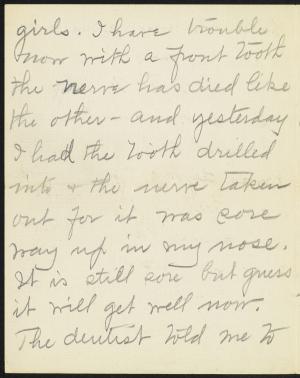 girls. I have trouble
now with a front tooth
the nerve has died like
the other - and yesterday
I had the tooth drilled
into & the nerve taken
out for it was sore
way up in my nose.
It is still sore but guess
it will get well now.
The dentist told me to